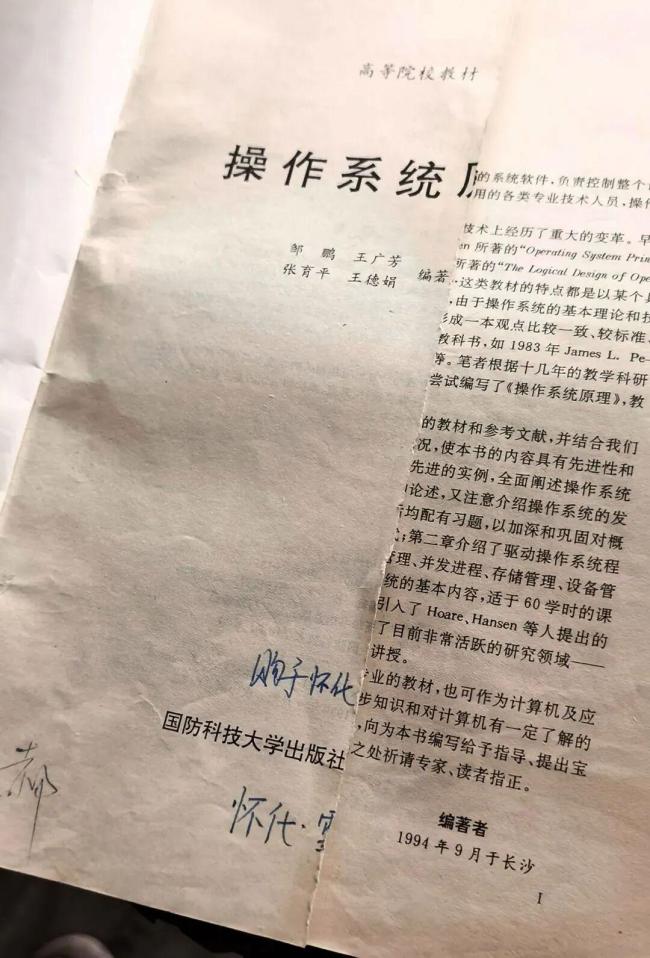 高等院校教材
操作系统
邹 鹏 王广芳
张育平 王德娟 编著
国防科技大学出版社
怀化·
的系统软件,负责控制整个
用的各类专业技术人员,操作
技术上经历了重大的变革。早
所著的“Operating System Prin
所著的“The Logical Design of Ope
这类教材的特点都是以某个具
,由于操作系统的基本理论和技
形成一本观点比较一致、较标准、
教科书,如1983年James L. Pe-
等。笔者根据十几年的教学科研
尝试编写了《操作系统原理》,教
的教材和参考文献,并结合我们
况,使本书的内容具有先进性和
先进的实例,全面阐述操作系统
论述,又注意介绍操作系统的发
均配有习题,以加深和巩固对概
;第二章介绍了驱动操作系统程
管理、并发进程、存储管理、设备管
统的基本内容,适于60学时的课
引入了Hoare、Hansen等人提出的
了目前非常活跃的研究领域——
讲授。
专业的教材,也可作为计算机及应
步知识和对计算机有一定了解的
,向为本书编写给予指导、提出宝
之处祈请专家、读者指正。
编著者
1994年9月于长沙
I